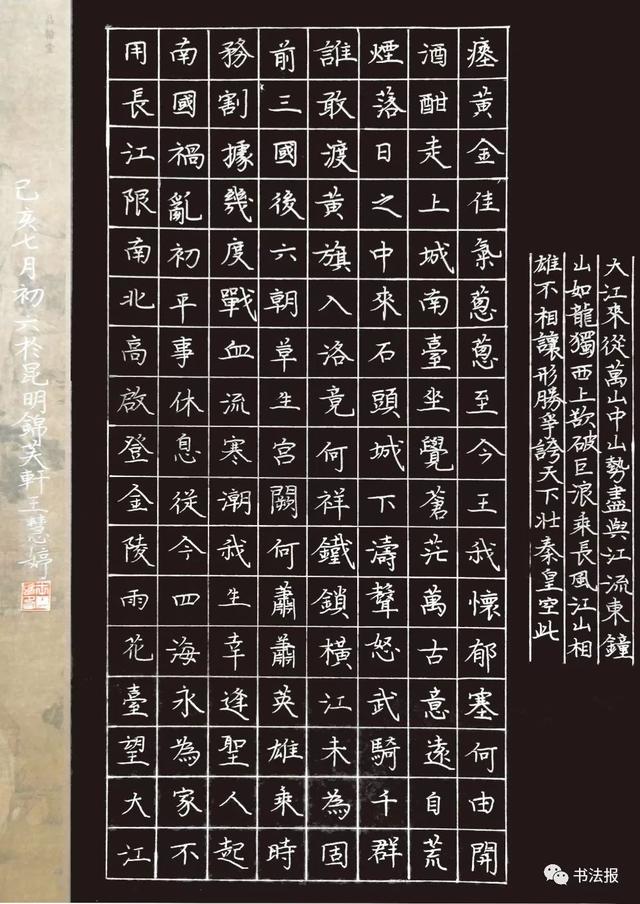 大江來從萬山中山勢盡與江流東鐘
山如龍獨西上欲破巨浪乘長風江山相
雄不相讓形勝爭誇天下壯秦皇空此
瘞黃金佳氣蔥蔥至今王我懷郁塞何由開
酒酣走上城南臺坐覺蒼茫萬古意遠自荒
煙落日之中來石頭城下濤聲怒武騎千群
誰敢渡黃旗入洛竟何祥鐵鎖橫江未為固
前三國後六朝草生宮闕何蕭蕭英雄乘時
務割據幾度戰血流寒潮我生幸逢聖人起
南國禍亂初平事休息從今四海永為家不
用長江限南北高啟登金陵雨花臺望大江
己亥七月初六於昆明錦芙軒王慧婷
书法报